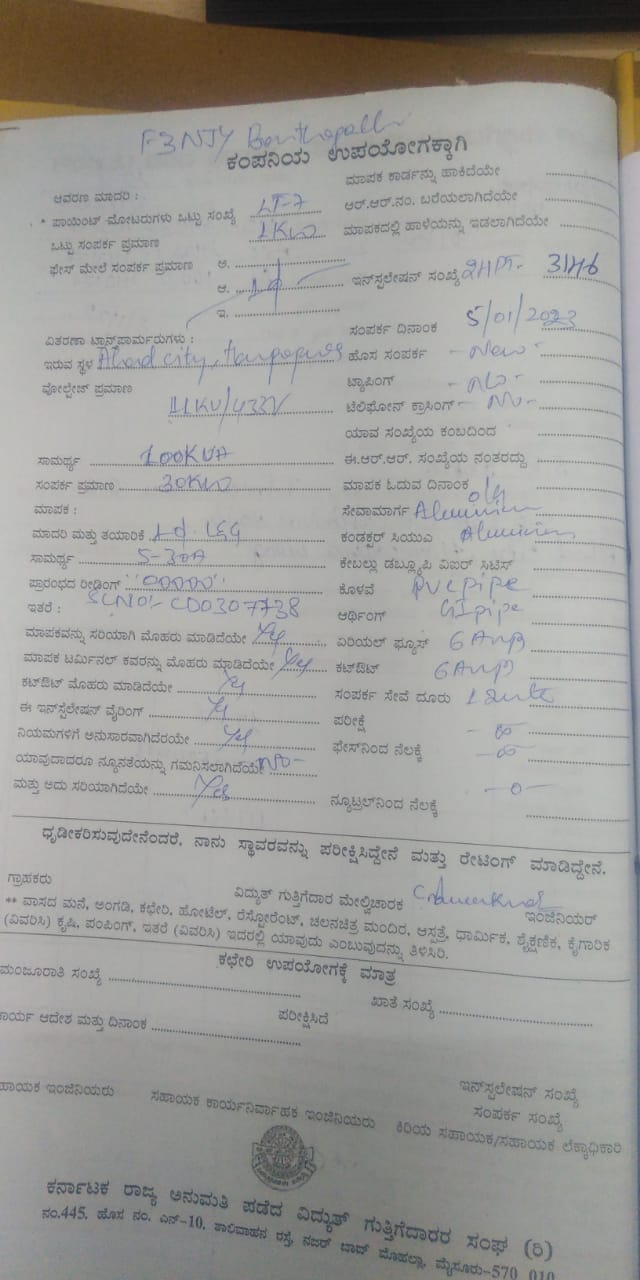 F3NJY
ಕಂಪನಿಯ ಉಪಯೋಗಕ್ಕಾಗಿ
ಮಾಪಕ ಕಾರ್ಡನ್ನು ಹಾಕಿದೆಯೇ
ಆವರಣ ಮಾದರಿ :
ಆರ್.ಆರ್.ನಂ. ಬರೆಯಲಾಗಿದೆಯೇ
* ಪಾಯಿಂಟ್ ಮೋಟರುಗಳು ಒಟ್ಟು ಸಂಖ್ಯೆ LT-7
ಮಾಪಕದಲ್ಲಿ ಹಾಳೆಯನ್ನು ಇಡಲಾಗಿದೆಯೇ
ಒಟ್ಟು ಸಂಪರ್ಕ ಪ್ರಮಾಣ 1KW
ಫೇಸ್ ಮೇಲೆ ಸಂಪರ್ಕ ಪ್ರಮಾಣ ಅ.
ಆ. 1ф
ಇನ್‌ಸ್ಟಲೇಷನ್ ಸಂಖ್ಯೆ 2HPT- 3146
ಇ.
ಸಂಪರ್ಕ ದಿನಾಂಕ 5/01/2023
ವಿತರಣಾ ಟ್ರಾನ್ಸ್‌ಫಾರ್ಮರುಗಳು :
ಇರುವ ಸ್ಥಳ city,
ಹೊಸ ಸಂಪರ್ಕ - New -
ವೋಲ್ಟೇಜ್ ಪ್ರಮಾಣ 11KV/433V
ಟ್ಯಾಪಿಂಗ್ - No -
ಟೆಲಿಫೋನ್ ಕ್ರಾಸಿಂಗ್ - No -
ಯಾವ ಸಂಖ್ಯೆಯ ಕಂಬದಿಂದ
ಸಾಮರ್ಥ್ಯ 100KVA
ಈ.ಆರ್.ಆರ್. ಸಂಖ್ಯೆಯ ನಂತರದ್ದು
ಸಂಪರ್ಕ ಪ್ರಮಾಣ 30KW
ಮಾಪಕ ಓದುವ ದಿನಾಂಕ
ಮಾಪಕ :
ಸೇವಾಮಾರ್ಗ Aluminium
ಮಾದರಿ ಮತ್ತು ತಯಾರಿಕೆ 1ф L&G
ಕಂಡಕ್ಟರ್ ಸಿಯುಎ Aluminium
ಸಾಮರ್ಥ್ಯ 5-30A
ಕೇಬಲ್ಲು ಡಬ್ಲ್ಯೂಪಿ ವಿಐರ್ ಸಿಟಿಸ್
ಪ್ರಾರಂಭದ ರೀಡಿಂಗ್ "00000"
ಕೊಳವೆ PVC pipe
ಇತರೆ : SLNo:- CD0307738
ಆರ್ಥಿಂಗ್ GI pipe
ಮಾಪಕವನ್ನು ಸರಿಯಾಗಿ ಮೊಹರು ಮಾಡಿದೆಯೇ Yes
ಏರಿಯಲ್ ಫ್ಯೂಸ್ 6 Amp
ಮಾಪಕ ಟರ್ಮಿನಲ್ ಕವರನ್ನು ಮೊಹರು ಮಾಡಿದೆಯೇ Yes
ಕಟ್‌ಔಟ್ 6 Amp
ಕಟ್‌ಔಟ್ ಮೊಹರು ಮಾಡಿದೆಯೇ Yes
ಸಂಪರ್ಕ ಸೇವೆ ದೂರು
ಈ ಇನ್‌ಸ್ಟಲೇಷನ್ ವೈರಿಂಗ್ Yes
ಪರೀಕ್ಷೆ - ∞
ನಿಯಮಗಳಿಗೆ ಅನುಸಾರವಾಗಿದೆರಯೇ Yes
ಫೇಸ್‌ನಿಂದ ನೆಲಕ್ಕೆ - ∞ -
ಯಾವುದಾದರೂ ನ್ಯೂನತೆಯನ್ನು ಗಮನಿಸಲಾಗಿದೆಯೇ No -
ಮತ್ತು ಅದು ಸರಿಯಾಗಿದೆಯೇ Yes
ನ್ಯೂಟ್ರಲ್‌ನಿಂದ ನೆಲಕ್ಕೆ - 0 -
ಧೃಡೀಕರಿಸುವುದೇನೆಂದರೆ, ನಾನು ಸ್ಥಾವರವನ್ನು ಪರೀಕ್ಷಿಸಿದ್ದೇನೆ ಮತ್ತು ರೇಟಿಂಗ್ ಮಾಡಿದ್ದೇನೆ.
ಗ್ರಾಹಕರು ವಿದ್ಯುತ್ ಗುತ್ತಿಗೆದಾರ ಮೇಲ್ವಿಚಾರಕ ಇಂಜಿನಿಯರ್
** ವಾಸದ ಮನೆ, ಅಂಗಡಿ, ಕಛೇರಿ, ಹೋಟೆಲ್, ರೆಸ್ಟೋರೆಂಟ್, ಚಲನಚಿತ್ರ ಮಂದಿರ, ಆಸ್ಪತ್ರೆ, ಧಾರ್ಮಿಕ, ಶೈಕ್ಷಣಿಕ, ಕೈಗಾರಿಕ
(ವಿವರಿಸಿ) ಕೃಷಿ, ಪಂಪಿಂಗ್, ಇತರೆ (ವಿವರಿಸಿ) ಇದರಲ್ಲಿ ಯಾವುದು ಎಂಬುವುದನ್ನು ತಿಳಿಸಿರಿ.
ಕಛೇರಿ ಉಪಯೋಗಕ್ಕೆ ಮಾತ್ರ
ಮಂಜೂರಾತಿ ಸಂಖ್ಯೆ
ಖಾತೆ ಸಂಖ್ಯೆ
ಕಾರ್ಯ ಆದೇಶ ಮತ್ತು ದಿನಾಂಕ
ಪರೀಕ್ಷಿಸಿದೆ
ಇನ್‌ಸ್ಟಲೇಷನ್ ಸಂಖ್ಯೆ
ಸಂಪರ್ಕ ಸಂಖ್ಯೆ
ಹಾಯಕ ಇಂಜಿನಿಯರು ಸಹಾಯಕ ಕಾರ್ಯನಿರ್ವಾಹಕ ಇಂಜಿನಿಯರು ಕಿರಿಯ ಸಹಾಯಕ/ಸಹಾಯಕ ಲೆಕ್ಕಾಧಿಕಾರಿ
ಕರ್ನಾಟಕ ರಾಜ್ಯ ಅನುಮತಿ ಪಡೆದ ವಿದ್ಯುತ್ ಗುತ್ತಿಗೆದಾರರ ಸಂಘ (ರಿ)
ನಂ.445, ಹೊಸ ನಂ. ಎನ್-10, ಶಾಲಿವಾಹನ ರಸ್ತೆ, ನಜರ್ ಬಾದ್ ಮೊಹಲ್ಲಾ, ಮೈಸೂರು-570 010